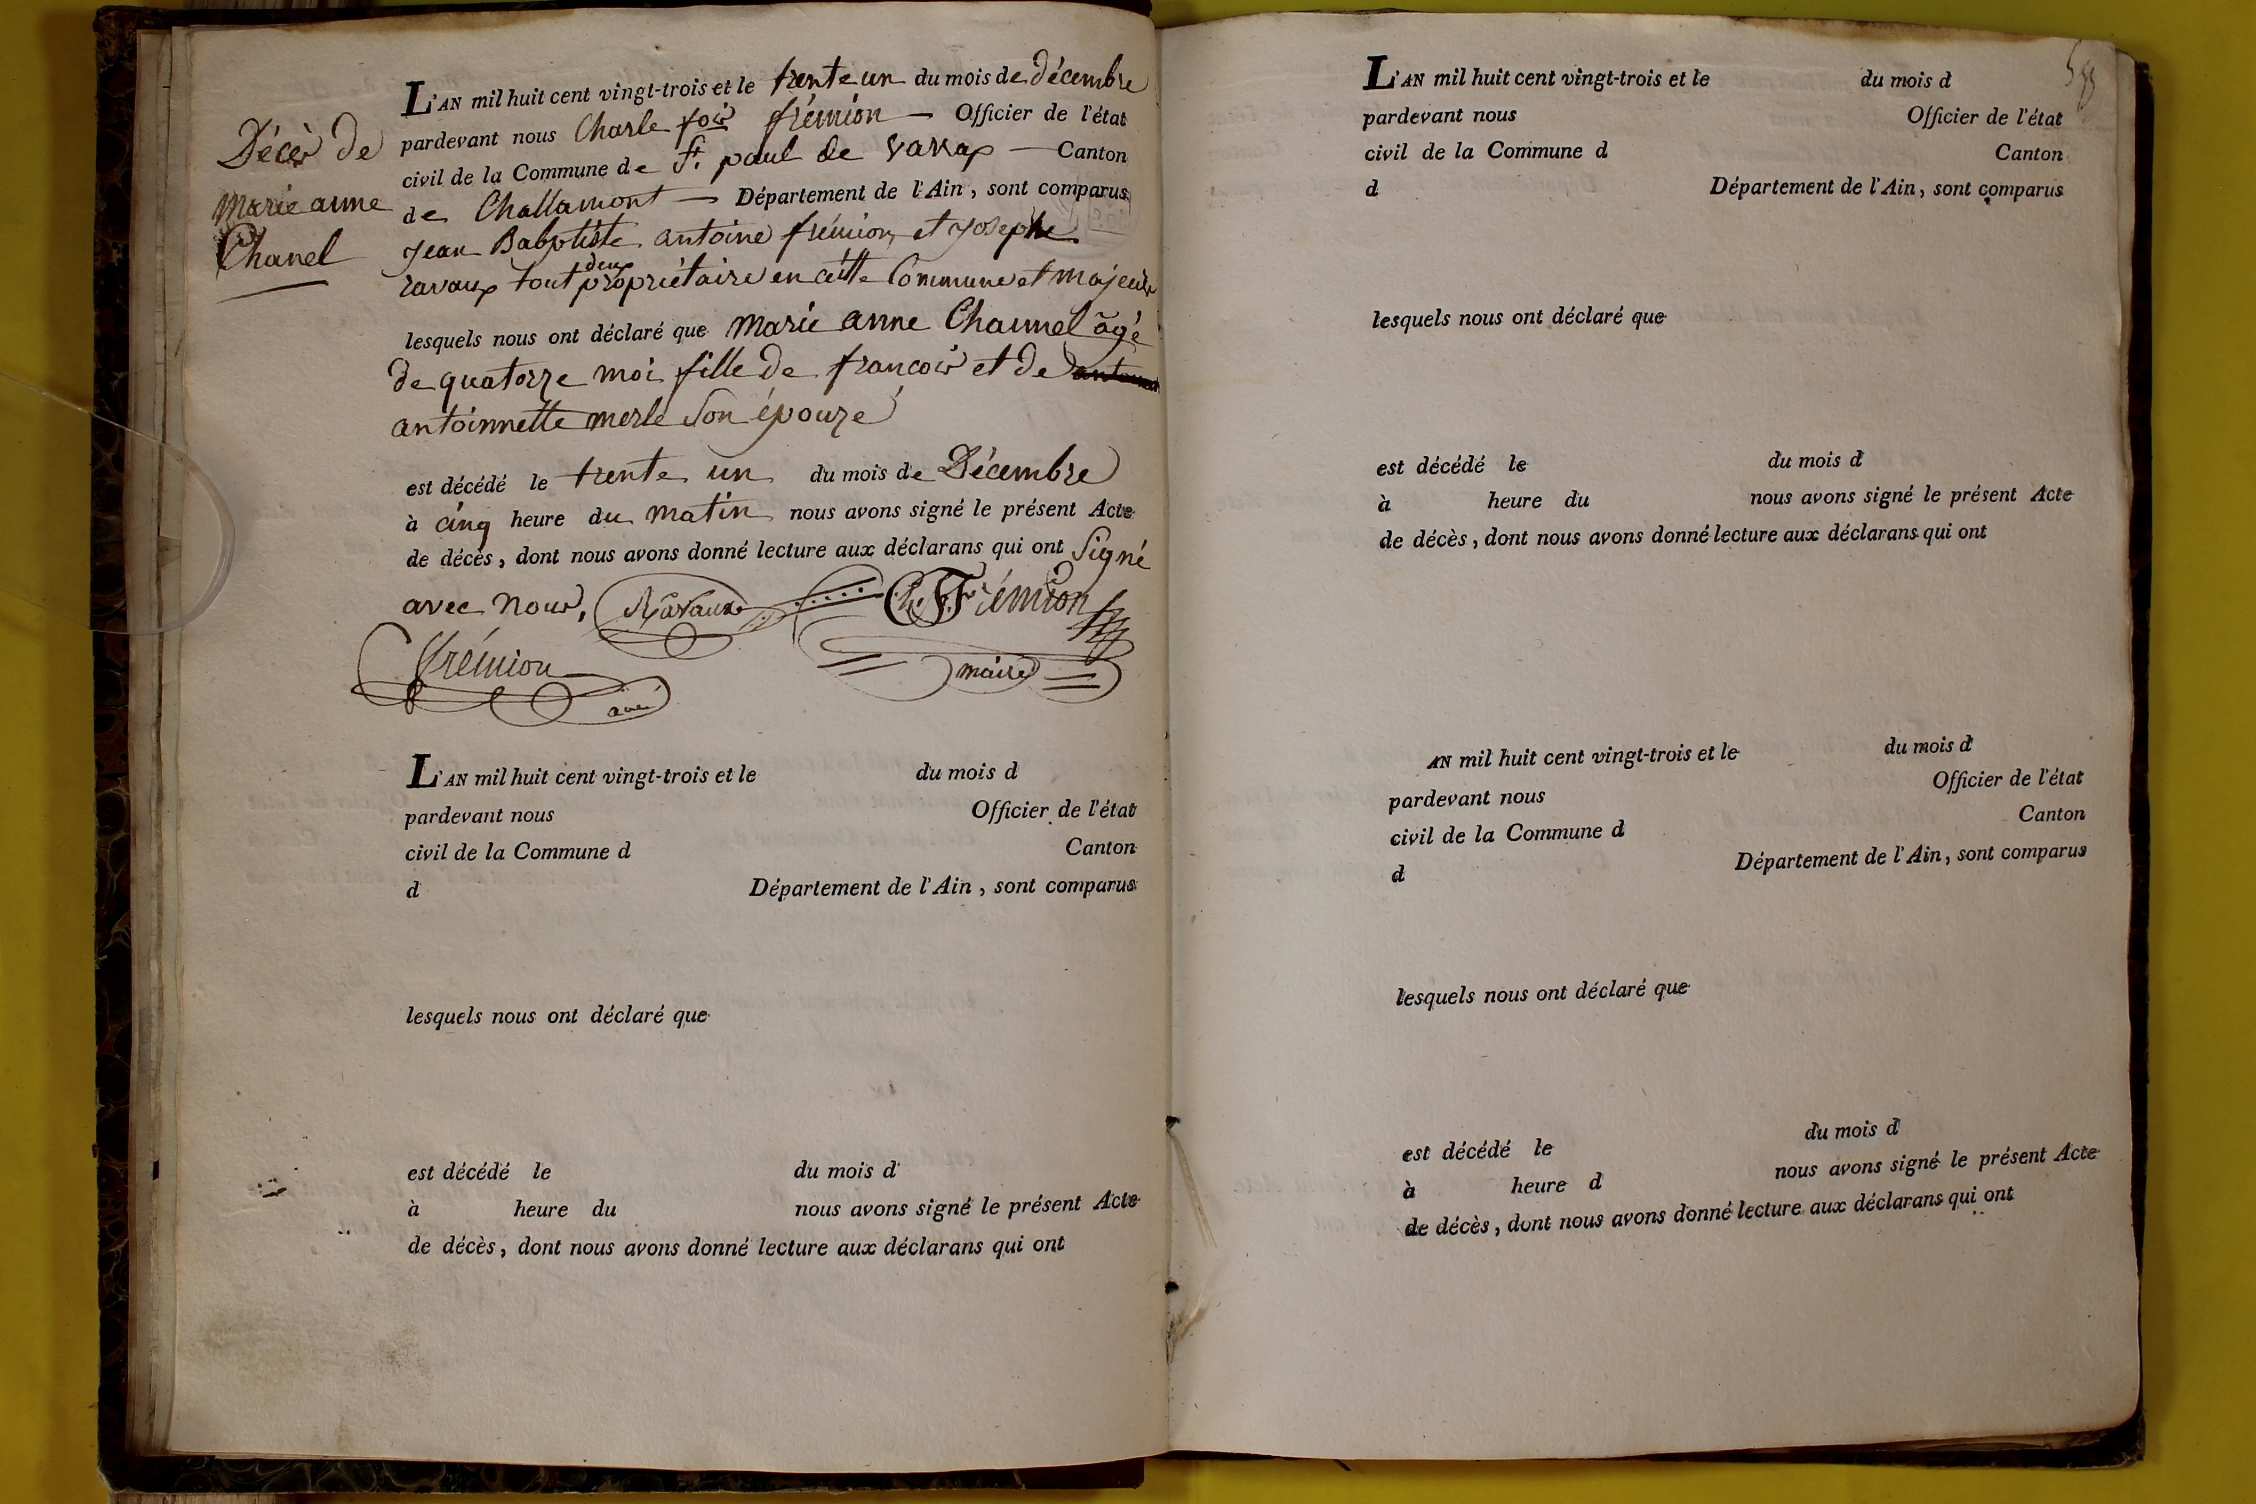 Décès de
Marie anne
Chanel
L'AN mil huit cent vingt-trois et le trente un du mois de décembre
pardevant nous Charle fois frémion — Officier de l'état
civil de la Commune de St. paul de varax — Canton
de Challamont — Département de l'Ain, sont comparus
Jean Babptiste antoine frémion et Josephe
ravaux tout deux propriétaire en cette Commune et majeurs
lesquels nous ont déclaré que Marie anne Channel âgé
de quatorze moi fille de françois et de
antoinnette merle son épouze
est décédé le trente un du mois de Décembre
à cinq heure du matin nous avons signé le présent Acte
de décès, dont nous avons donné lecture aux déclarans qui ont signé
avec nous, Ravaux Ch. F. Frémion
maire
frémion
ainé
L'AN mil huit cent vingt-trois et le du mois d
pardevant nous Officier de l'état
civil de la Commune d Canton
d Département de l'Ain, sont comparus
lesquels nous ont déclaré que
est décédé le du mois d
à heure du nous avons signé le présent Acte
de décès, dont nous avons donné lecture aux déclarans qui ont
L'AN mil huit cent vingt-trois et le du mois d
pardevant nous Officier de l'état
civil de la Commune d Canton
d Département de l'Ain, sont comparus
lesquels nous ont déclaré que
est décédé le du mois d
à heure du nous avons signé le présent Acte
de décès, dont nous avons donné lecture aux déclarans qui ont
AN mil huit cent vingt-trois et le du mois d
pardevant nous Officier de l'état
civil de la Commune d Canton
d Département de l'Ain, sont comparus
lesquels nous ont déclaré que
est décédé le du mois d
à heure d nous avons signé le présent Acte
de décès, dont nous avons donné lecture aux déclarans qui ont